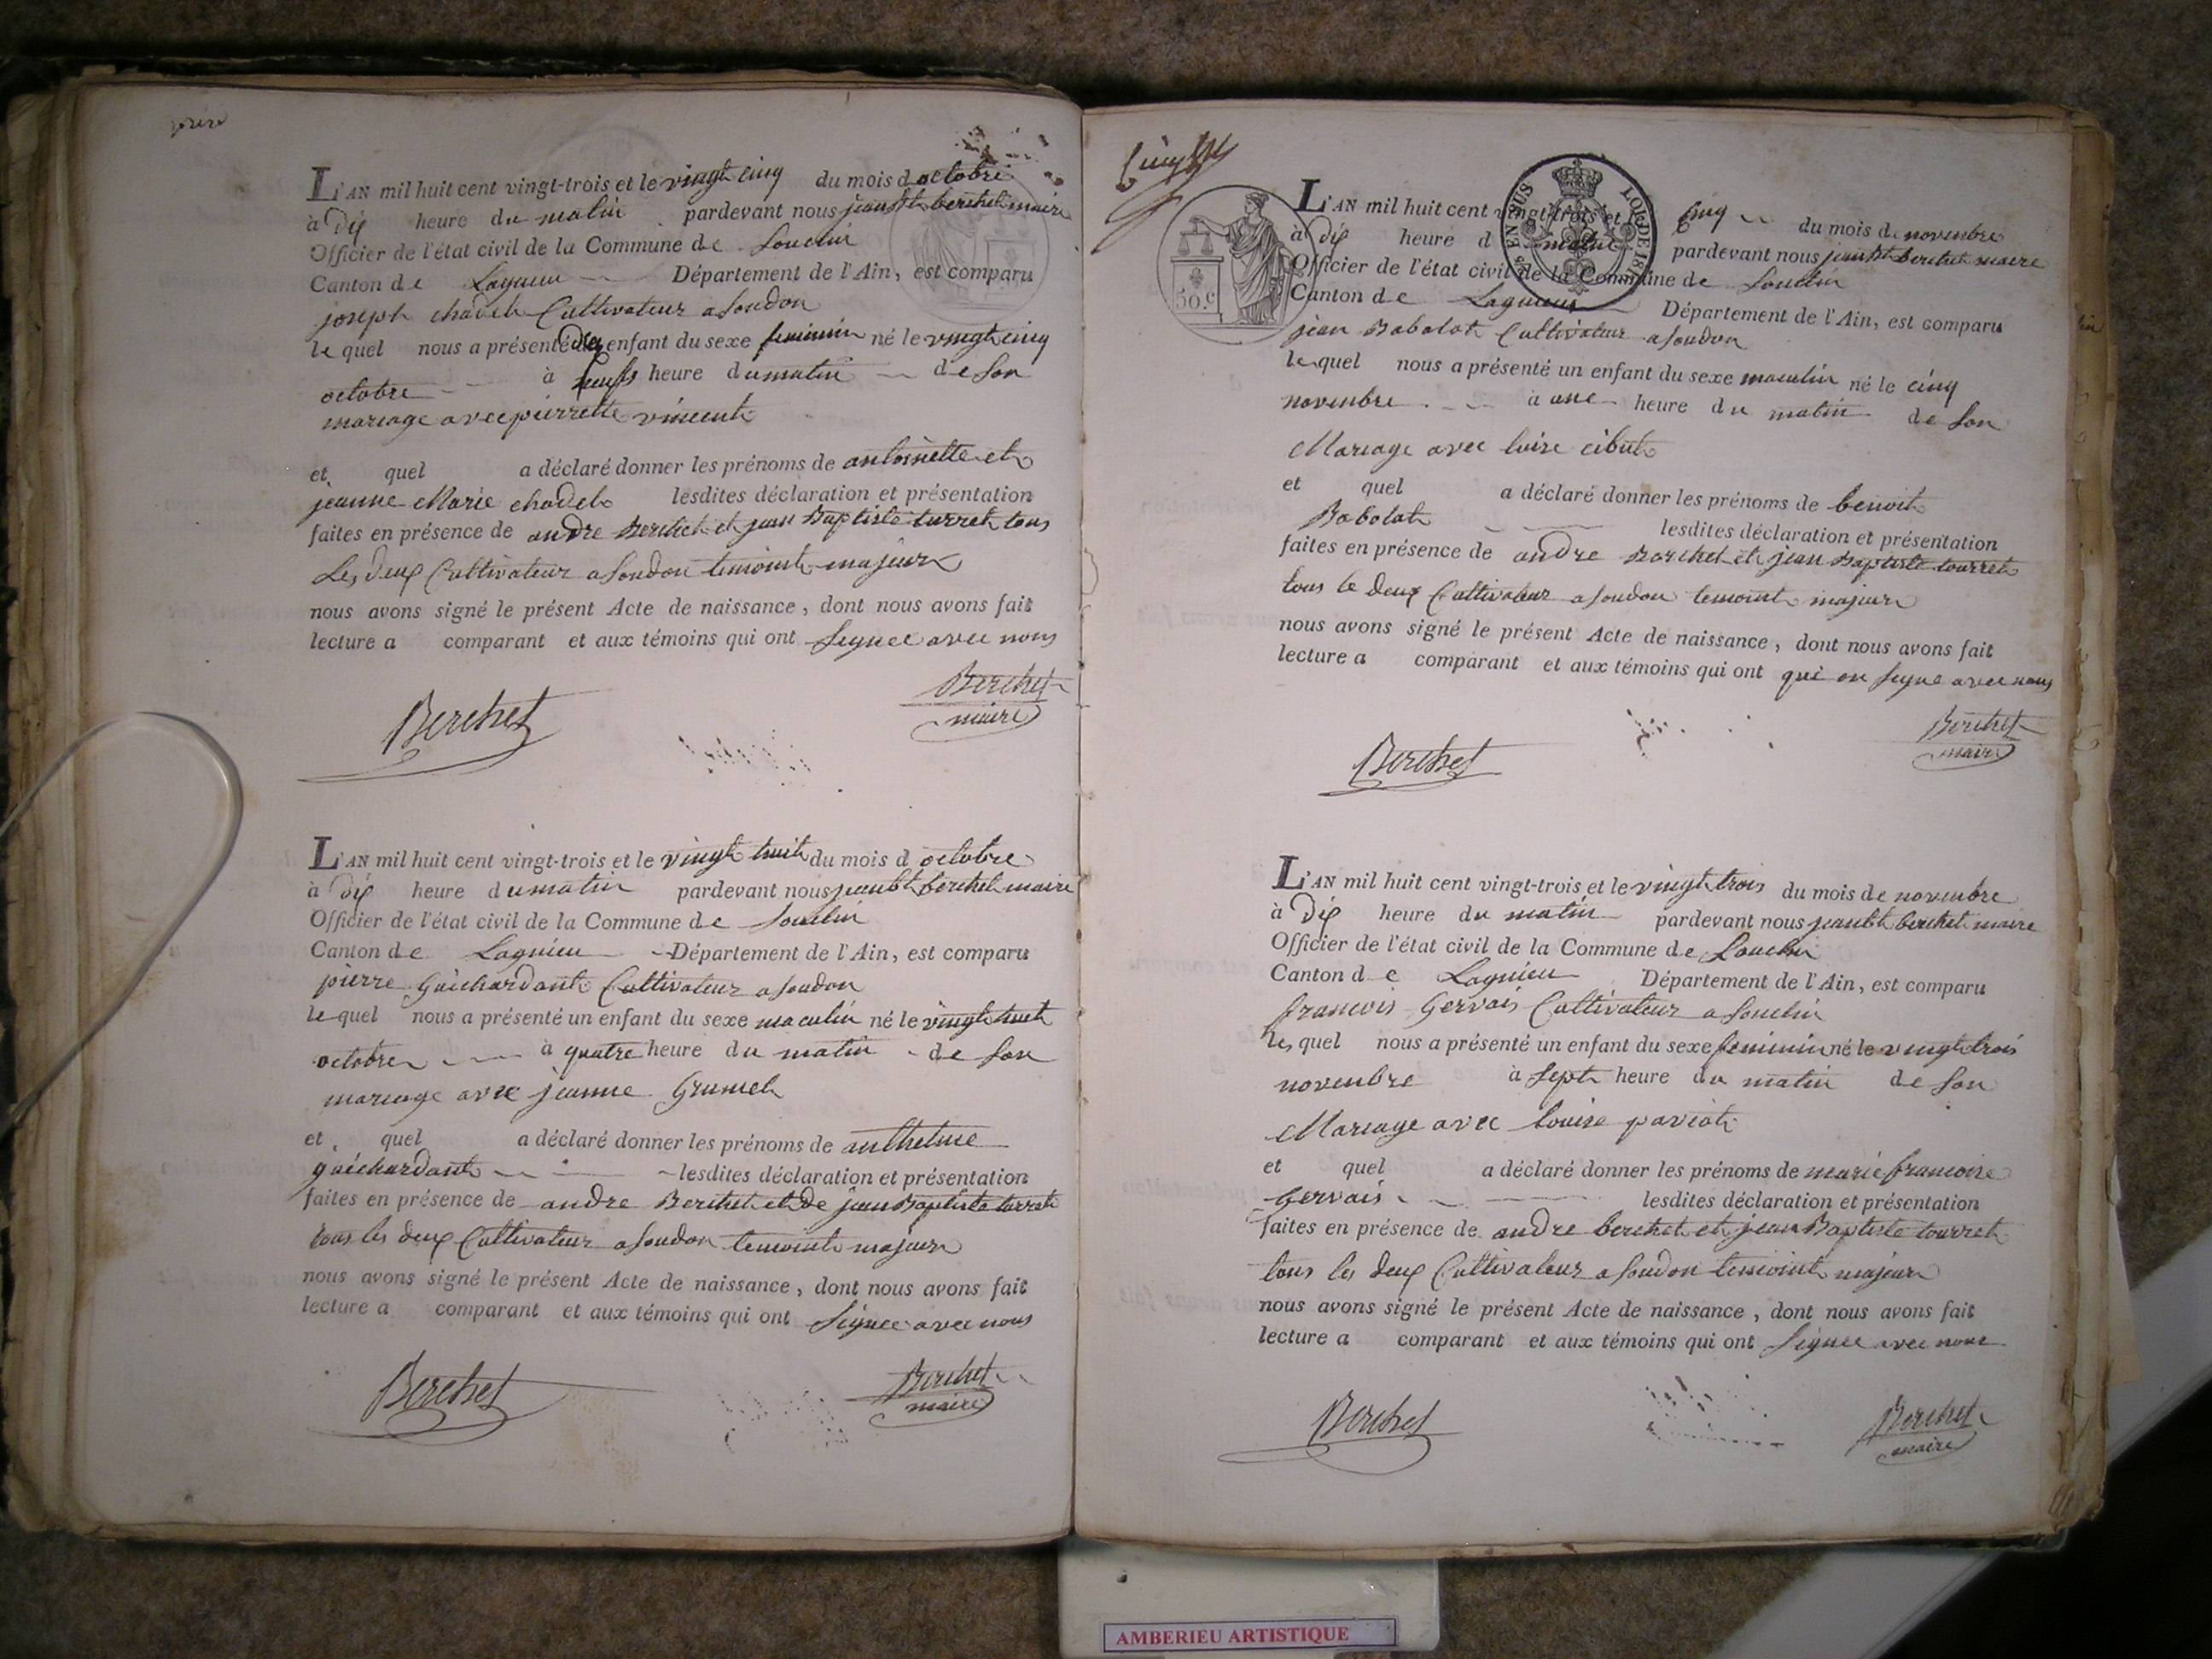 L'AN mil huit cent vingt-trois et le vingt cinq du mois d octobre
à dix heure du matin pardevant nous jean bte berchet maire
Officier de l'état civil de la Commune de Souclin
Canton de Lagnieu Département de l'Ain, est comparu
joseph chadel Cultivateur a Soudon
le quel nous a présenté deux enfant du sexe feminin né le vingt cinq
octobre à neufs heure du matin de son
mariage avec pierrette vincent
et quel a déclaré donner les prénoms de antoinette et
jeanne Marie chadel lesdites déclaration et présentation
faites en présence de andre Berchet et jean Baptiste turret tous
Les deux Cultivateur a Soudon temoint majeur
nous avons signé le présent Acte de naissance, dont nous avons fait
lecture a comparant et aux témoins qui ont Signee avec nous
Berchet
Berchet
maire
L'AN mil huit cent vingt-trois et le vingt huit du mois d octobre
à dix heure du matin pardevant nous jean bt berchet maire
Officier de l'état civil de la Commune de Souclin
Canton de Lagnieu Département de l'Ain, est comparu
pierre Guichardant Cultivateur a Soudon
le quel nous a présenté un enfant du sexe maculin né le vingt huit
octobre à quatre heure du matin de son
mariage avec jeanne Grumel
et quel a déclaré donner les prénoms de anthelme
guichardant lesdites déclaration et présentation
faites en présence de andre Berchet et de jean Baptiste turret
tous les deux Cultivateur a Soudon temoint majeur
nous avons signé le présent Acte de naissance, dont nous avons fait
lecture a comparant et aux témoins qui ont Signee avec nous
Berchet
Berchet
maire
EN SUS LOI DE
50.c
L'AN mil huit cent vingt-trois et le cinq du mois de novembre
à dix heure d matin pardevant nous jean bt berchet maire
Officier de l'état civil de la Commune de Souclin
Canton de Lagnieu Département de l'Ain, est comparu
jean Babolat Cultivateur a Soudon
le quel nous a présenté un enfant du sexe maculin né le cinq
novembre à une heure du matin de son
Mariage avec luise cibut
et quel a déclaré donner les prénoms de benoit
Babolat lesdites déclaration et présentation
faites en présence de andre Barchet et jean Baptiste tourret
tous le deux Cultivateur a Soudon temoint majeur
nous avons signé le présent Acte de naissance, dont nous avons fait
lecture a comparant et aux témoins qui ont qui on signe avec nous
Berchet
Berchet
maire
L'AN mil huit cent vingt-trois et le vingt trois du mois de novembre
à dix heure du matin pardevant nous jean bt berchet maire
Officier de l'état civil de la Commune de Souclin
Canton de Lagnieu Département de l'Ain, est comparu
francois Gervais Cultivateur a Souclin
les quel nous a présenté un enfant du sexe feminin né le vingt trois
novembre à sept heure du matin de son
Mariage avec louise paviot
et quel a déclaré donner les prénoms de marie francoise
Gervais lesdites déclaration et présentation
faites en présence de andre berchet et jean Baptiste tourret
tous les deux Cultivateur a Soudon temoint majeur
nous avons signé le présent Acte de naissance, dont nous avons fait
lecture a comparant et aux témoins qui ont Signee avec nous
Berchet
Berchet
maire
AMBERIEU ARTISTIQUE